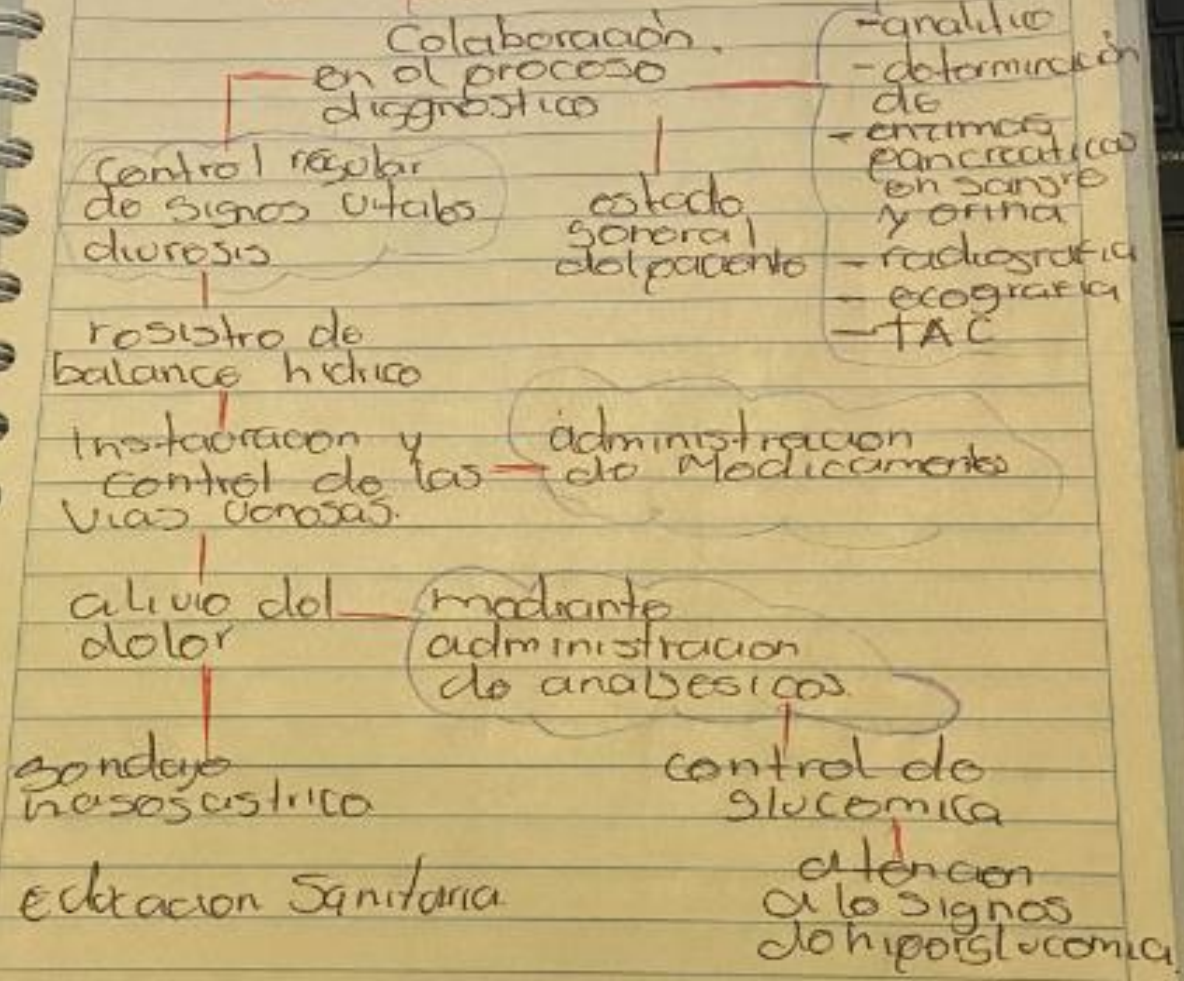 Colaboración.
en el proceso
diagnostico
-analitico
-determinación
de
- enzimas
pancreaticas
en sangre
y orina
- radiografia
- ecografia
- TAC
Control regular
de signos vitales
diuresis
estado
general
del paciente
registro de
balance hidrico
Instauracion y
control de las
vias venosas.
administracion
de Medicamentos
alivio del
dolor
mediante
administracion
de analgesicos
sondaje
nasogastrico
control de
glucemica
atencion
a lo signos
de hiperglucemia
Edcacion Sanitaria